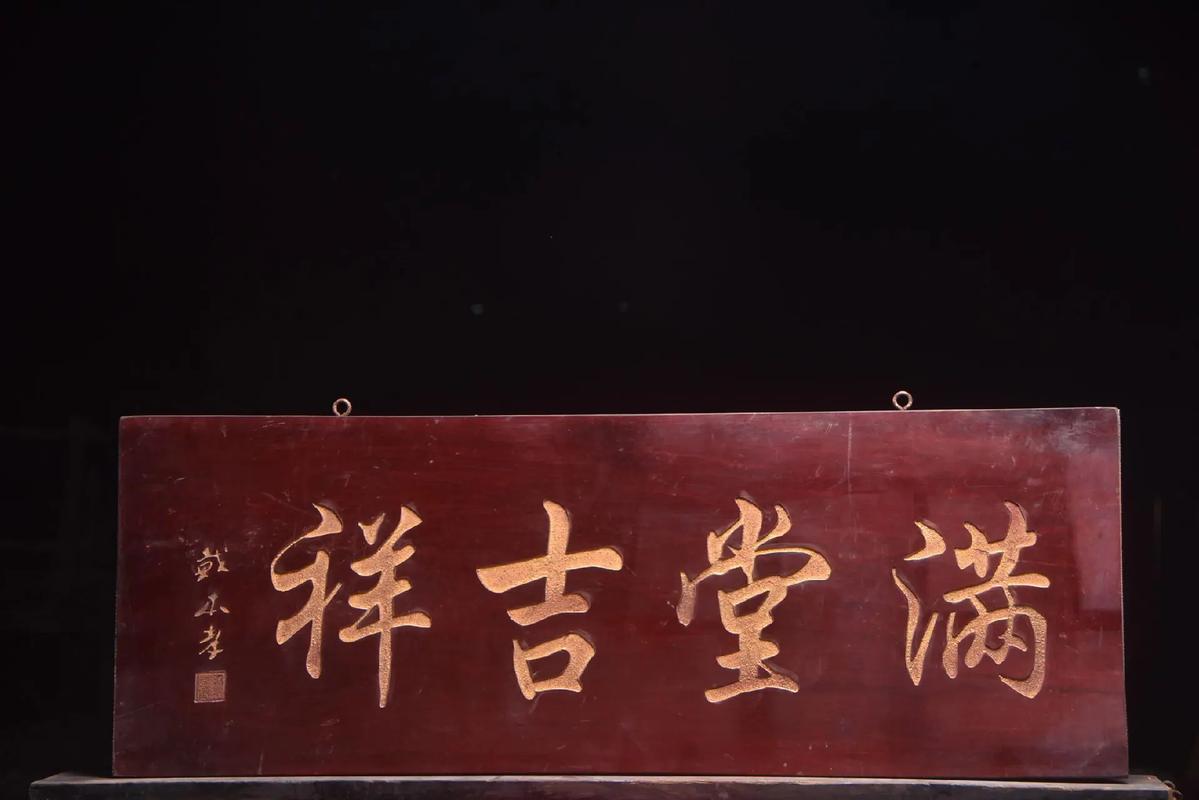 满堂吉祥
戴本孝